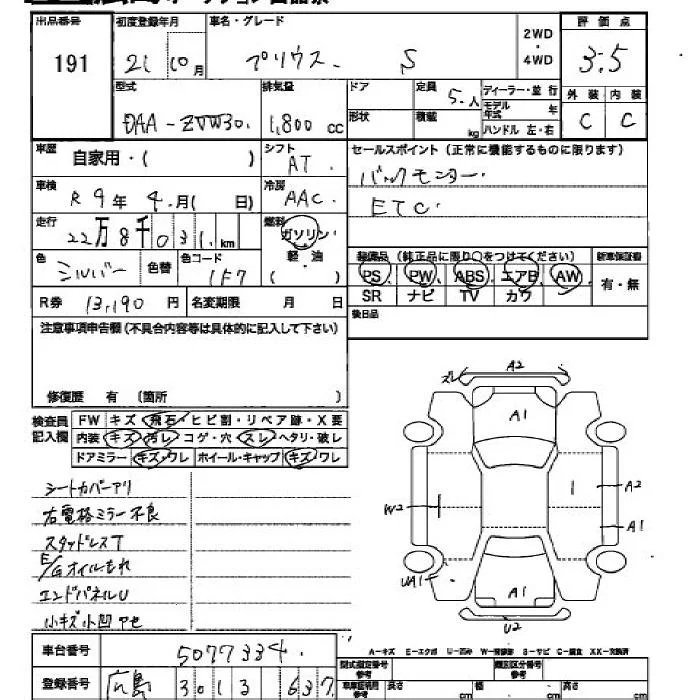 出品番号 初度登録年月 車名・グレード 2WD・4WD 評価点
191 21 10月 プリウス S 3.5
型式 排気量 ドア 定員 5.人 ディーラー・並行 外装 内装
形状 積載 kg モデル年式 年 ハンドル 左・右
DAA-ZVW30. 1,800 cc C C
車歴 自家用・( ) シフト AT. セールスポイント(正常に機能するものに限ります)
車検 R9年4.月( 日) 冷房 AAC. バックモニター.
ETC.
走行 22万8千031.km 燃料 ガソリン・軽・油 ( )
色 シルバー 色替 色コード 1F7
装備品(純正品に限り○をつけてください) 新車保証書
PS、PW、ABS、エアB、AW 有・無
SR ナビ TV カワ
R券 13,190 円 名変期限 月 日 後日品
注意事項申告欄(不具合内容等は具体的に記入して下さい)
修復歴 有 (箇所 )
検査員記入欄 FW キズ・飛石・ヒビ割・リペア跡・X要
内装 キズ・汚レ・コゲ・穴・スレ・ヘタリ・破レ
ドアミラー キズ・ワレ ホイール・キャップ キズ・ワレ
シートカバーアリ
右電格ミラー不良
スタッドレスT
E/Gオイルもれ
エンドパネルU
小キズ小凹アセ
ズレ A2
A1
W2 A2
A1
UA1 A1
U2
A-キズ E-エクボ U-凹み W-補修跡 S-サビ C-腐食 XX-交換済
車台番号 5077334.
登録番号 広島 301 3 637
型式指定番号 参考 類別区分番号 参考
車庫証明用 参考 長さ cm 幅 cm 高さ cm